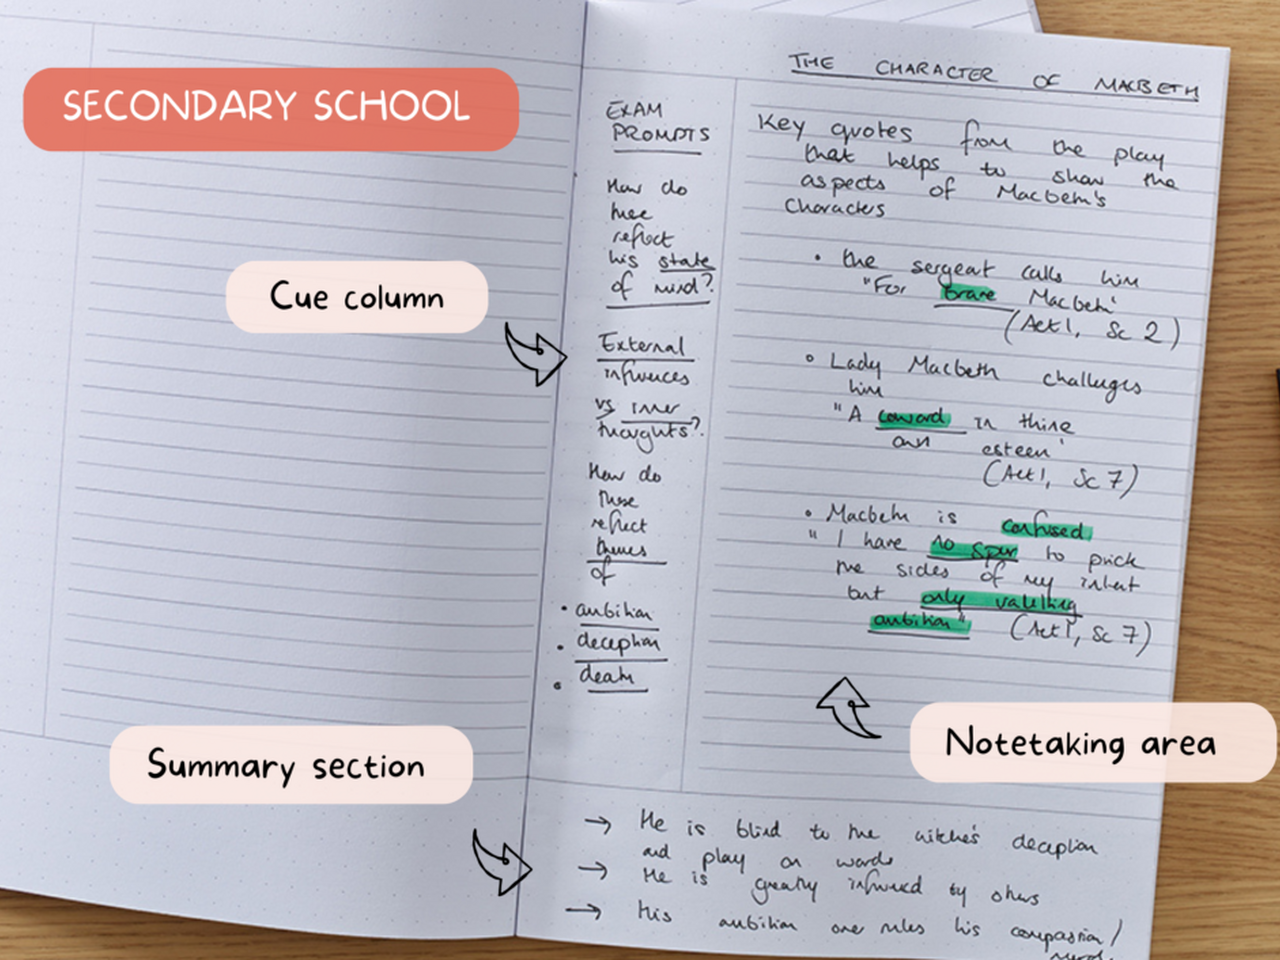 SECONDARY SCHOOL
THE CHARACTER OF MACBETH
EXAM
PROMPTS
How do
these
reflect
his state
of mind?
External
influences
vs inner
thoughts?
How do
these
reflect
themes
of
• ambition
• deception
• death
Key quotes from the play
that helps to show the
aspects of Macbeth's
Characters
• the sergeat calls him
"For brave Macbeth"
(Act 1, Sc 2)
• Lady Macbeth challenges
him
"A coward in thine
own esteem"
(Act 1, Sc 7)
• Macbeth is confused
" I have no spur to prick
the sides of my intent
but only
ambition" (Act 1, Sc 7)
Cue column
Notetaking area
Summary section
→ He is blind to the witche's deception
and play on words
→ He is greatly influenced by others
→ His ambition over rules his compassion /